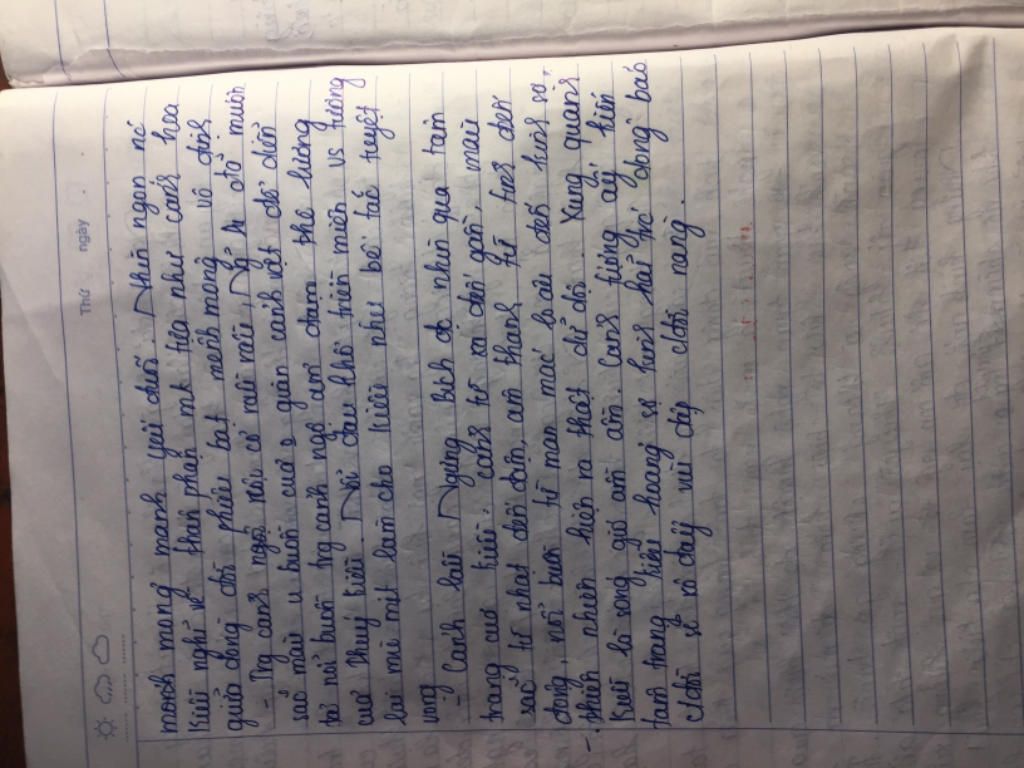 Thứ ngày
mỏng mong manh yếu đuối. Nhìn ngọn nó
Kiều nghĩ về thân phận mk tựa như cánh hoa
giữa dòng đời phiêu bạt mênh mông vô định
- Tng cảnh ngộ
sắc màu u buồn của quan cảnh vật để diễn
tả nỗi buồn tng cảnh ngộ đơn thê lương
của Thuý Kiều. Nỗi đau khổ triền miên vs tương
lai mù mịt làm cho Kiều như bế tắc tuyệt
vọng
- Cách lầu Ngưng Bích đc nhìn qua tâm
trạng của Kiều: cảnh từ xa đến gần. màu
sắc từ nhạt đến đậm, âm thanh từ tĩnh đến
động, nỗi buồn từ man mác lo âu đến kinh sợ.
- thiên nhiên hiện ra thật dữ dội. Xung quanh
Kiều là sóng gió ầm ầm. Cảnh tượng ấy khiến
tâm trạng Kiều hoảng sợ hình dông bão
cđời sẽ xô đẩy vùi dập cđời nàng.